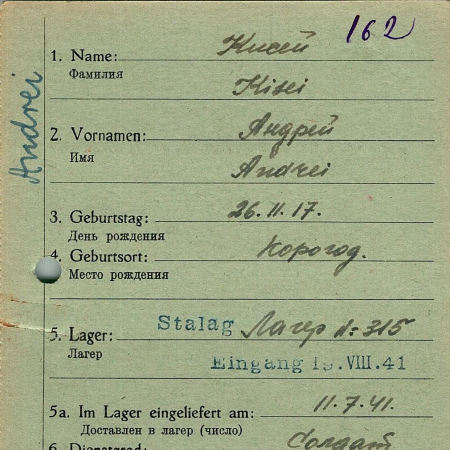 162
1. Name: Кисей
Фамилия
Kisei
Andrei
2. Vornamen: Андрей
Имя
Andrei
3. Geburtstag: 26.11.17.
День рождения
4. Geburtsort: Корогод.
Место рождения
5. Lager: Stalag Лагер №: 315
Лагер
Eingang 19.VIII.41
5a. Im Lager eingeliefert am: 11.7.41.
Доставлен в лагер (число)
6. Dienstgrad: Солдат